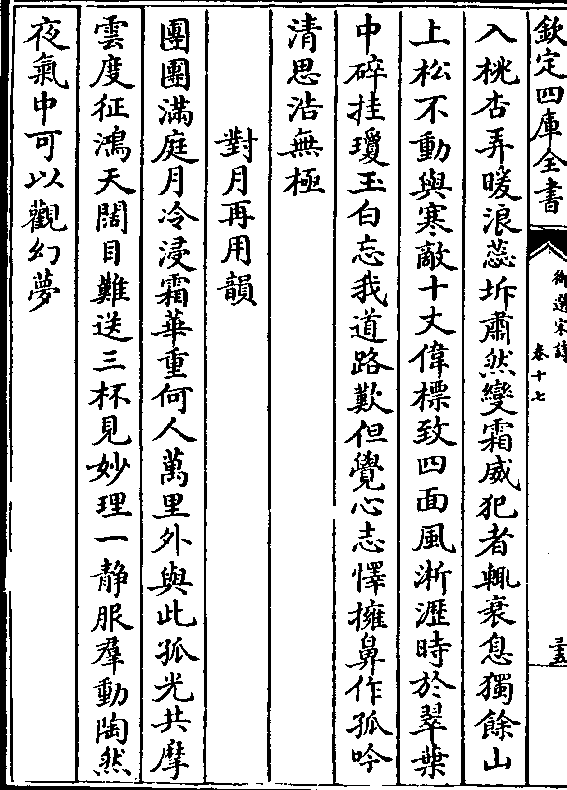 欽定四庫全書
御選宋詩
卷十七
三五
入桃杏弄暖浪蕊坼肅然變霜威犯者輒衰息獨餘山
上松不動與寒敵十丈偉標致四面風淅瀝時於翠葉
中碎挂瓊玉白忘我道路歎但覺心志懌擁鼻作孤吟
清思浩無極
對月再用韻
團團滿庭月冷浸霜華重何人萬里外與此孤光共摩
雲度征鴻天闊目難送三杯見妙理一静服羣動陶然
夜氣中可以觀幻夢